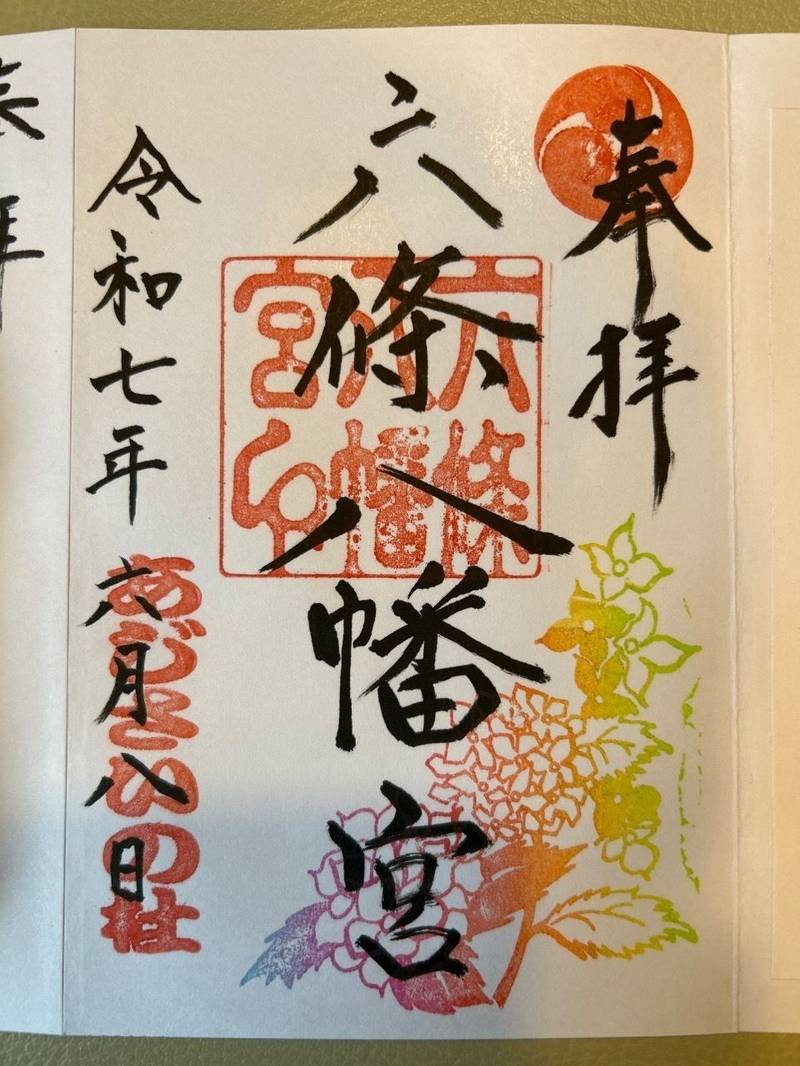 奉拝
六條八幡宮
六條八幡宮印
令和七年六月八日
あじさいの社